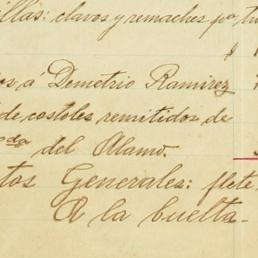 illas: clavos y remaches pa tu
$ 1
os, á Demetrio Ramirez
de costales remitidos de
da del Alamo.
tos Generales: flete
A la buelta.